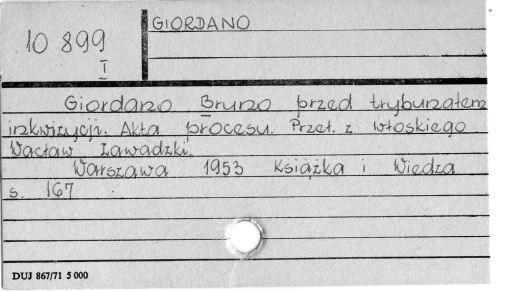 GIORDANO
10 899
I
Giordano Bruno przed trybunałem
inkwizycji. Akta procesu. Przeł. z włoskiego
Wacław Zawadzki.
Warszawa 1953 Książka i Wiedza
s. 167
DUJ 867/71 5 000